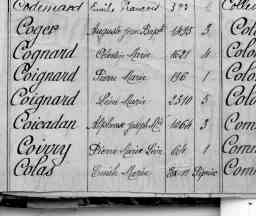 Codemard Emile François 373 Colle
Coger Auguste Jean Bapte 1495 3 Colo
Cognard Célestin Marie 1621 4 Colo
Coignard Pierre Marie 196 1 Colo
Coignard Léon Marie 2510 5 Colo
Coicadan Alphonse Joseph Mie 1064 3 Com
Marie 1 Com
Colas Emile Marie Com